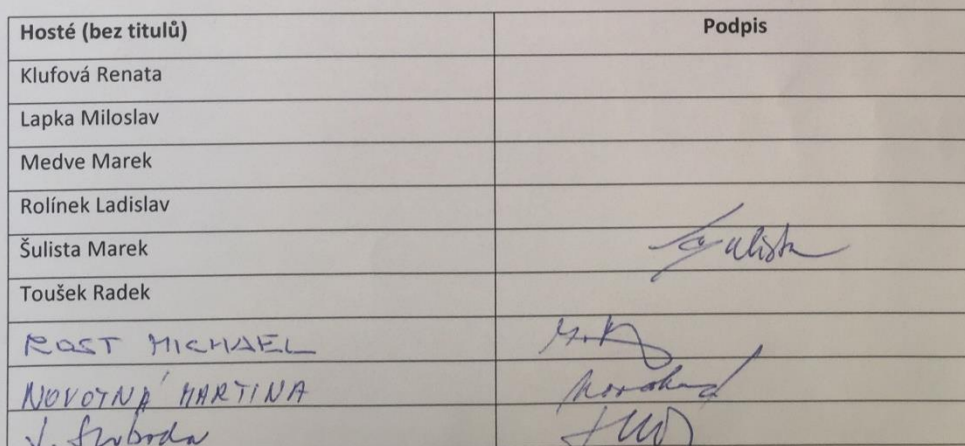 Hosté (bez titulů) Podpis
Klufová Renata
Lapka Miloslav
Medve Marek
Rolínek Ladislav
Šulista Marek Šulista
Toušek Radek
ROST MICHAEL
NOVOTNÁ MARTINA
J. Svoboda